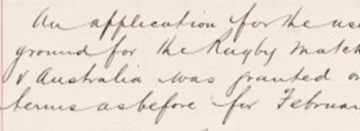 An application for the use
ground for the Rugby Match
v Australia was granted on
terms as before for Februar